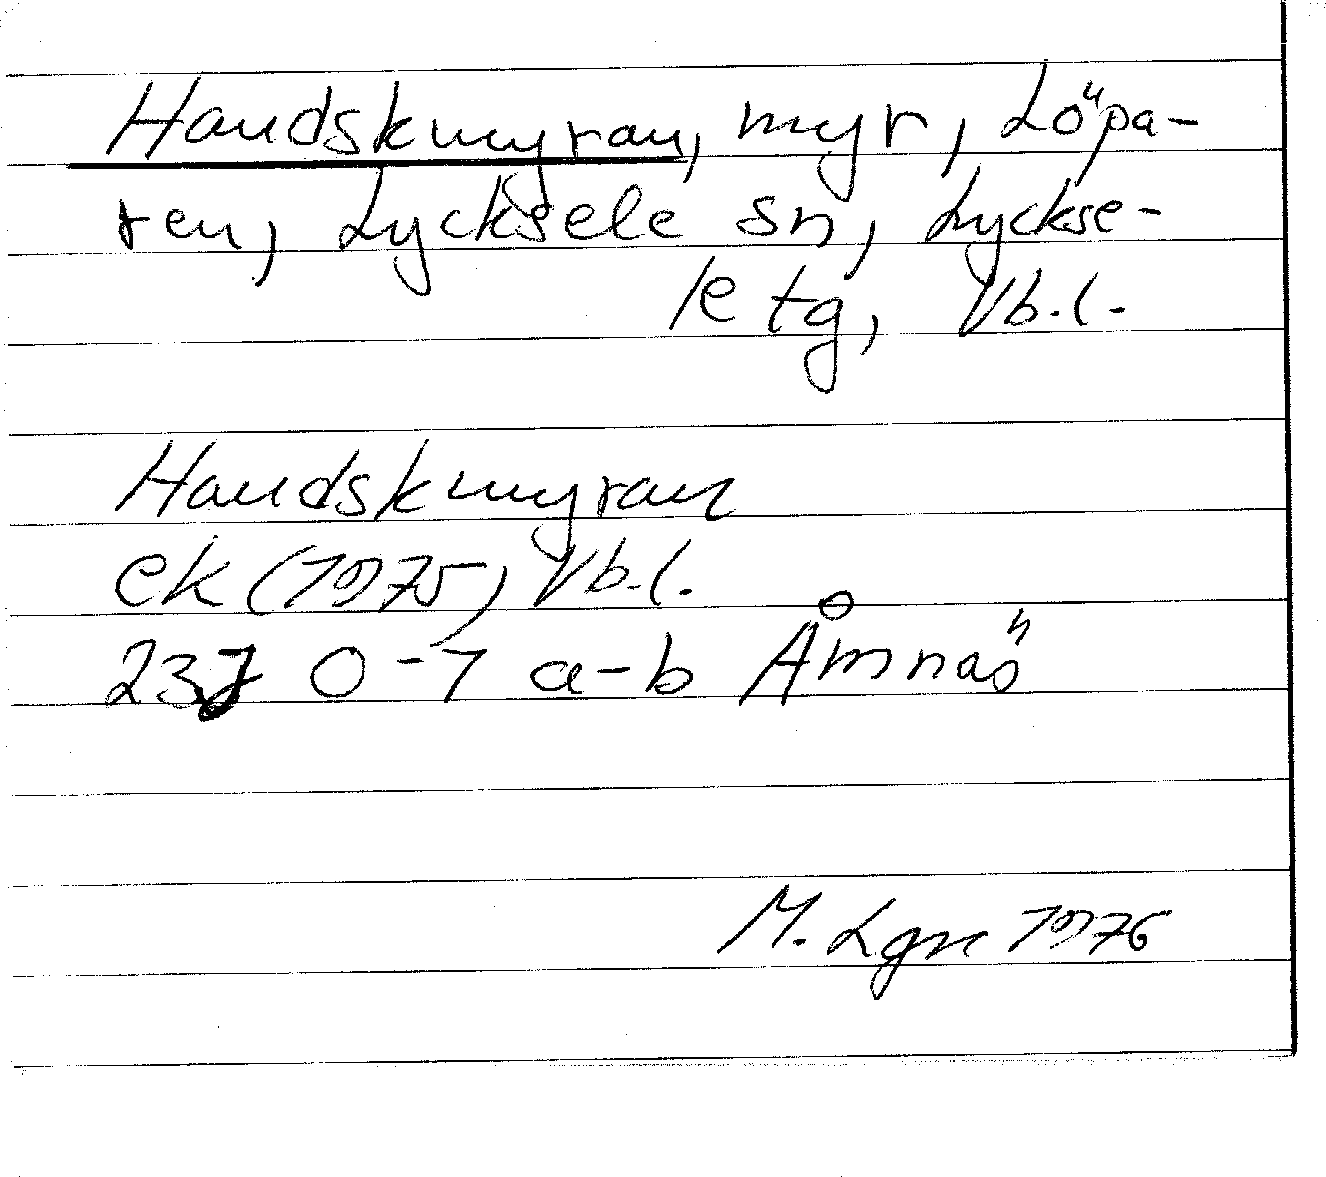 Handskmyran, myr, Löpa-
ren, Lycksele sn, Lyckse-
le tg, Vb.l.
Handskmyran
ek (1975) Vb.l.
23J 0-1 a-b Åmnäs
M. Lgn 1976